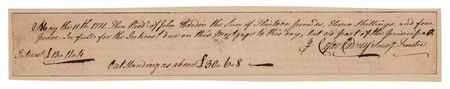 May the 11th 1771. Then Recd. of John Hardin the Sum of Thirteen pounds, Eleven Shillings, and four
pence In full for the Interest due on this Mortgage to this day, but no part of the principal
Interest £13=11=4
Outstanding as above £30=6=8